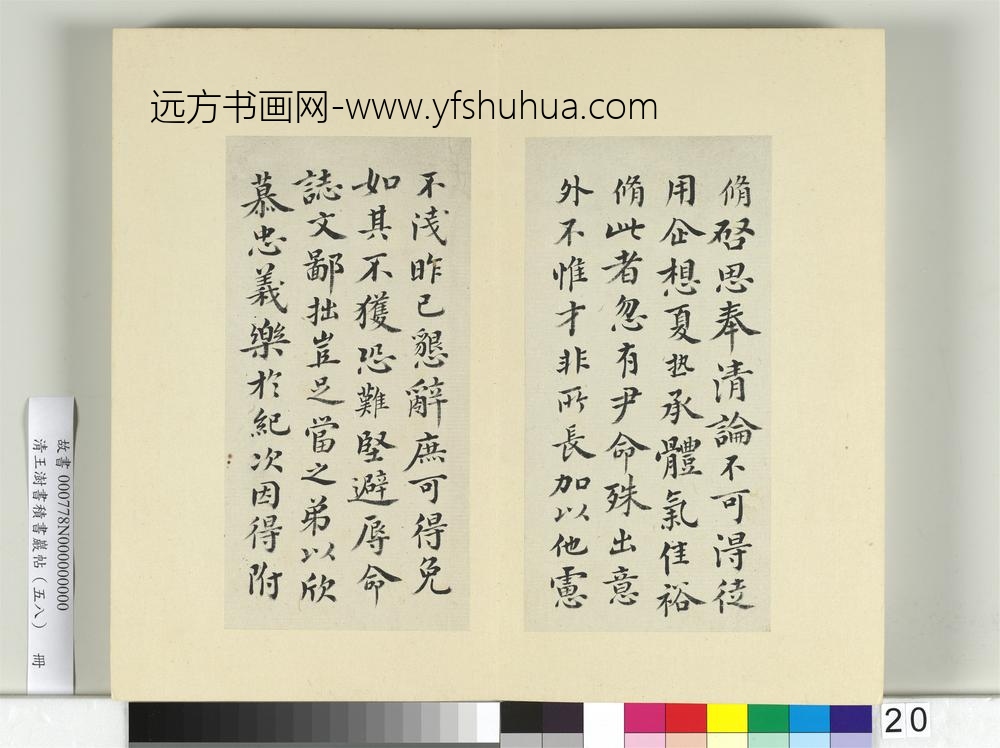 远方书画网-www.yfshuhua.com
脩啓思奉清論不可得徒
用企想夏热承體氣佳裕
脩此者忽有尹命殊出意
外不惟才非所長加以他慮
不浅昨已懇辭庶可得免
如其不獲恐難堅避辱命
誌文鄙拙豈足當之弟以欣
慕忠義樂於紀次因得附
故書 000778N000000000
清王澍書積書巖帖(五八) 冊
20